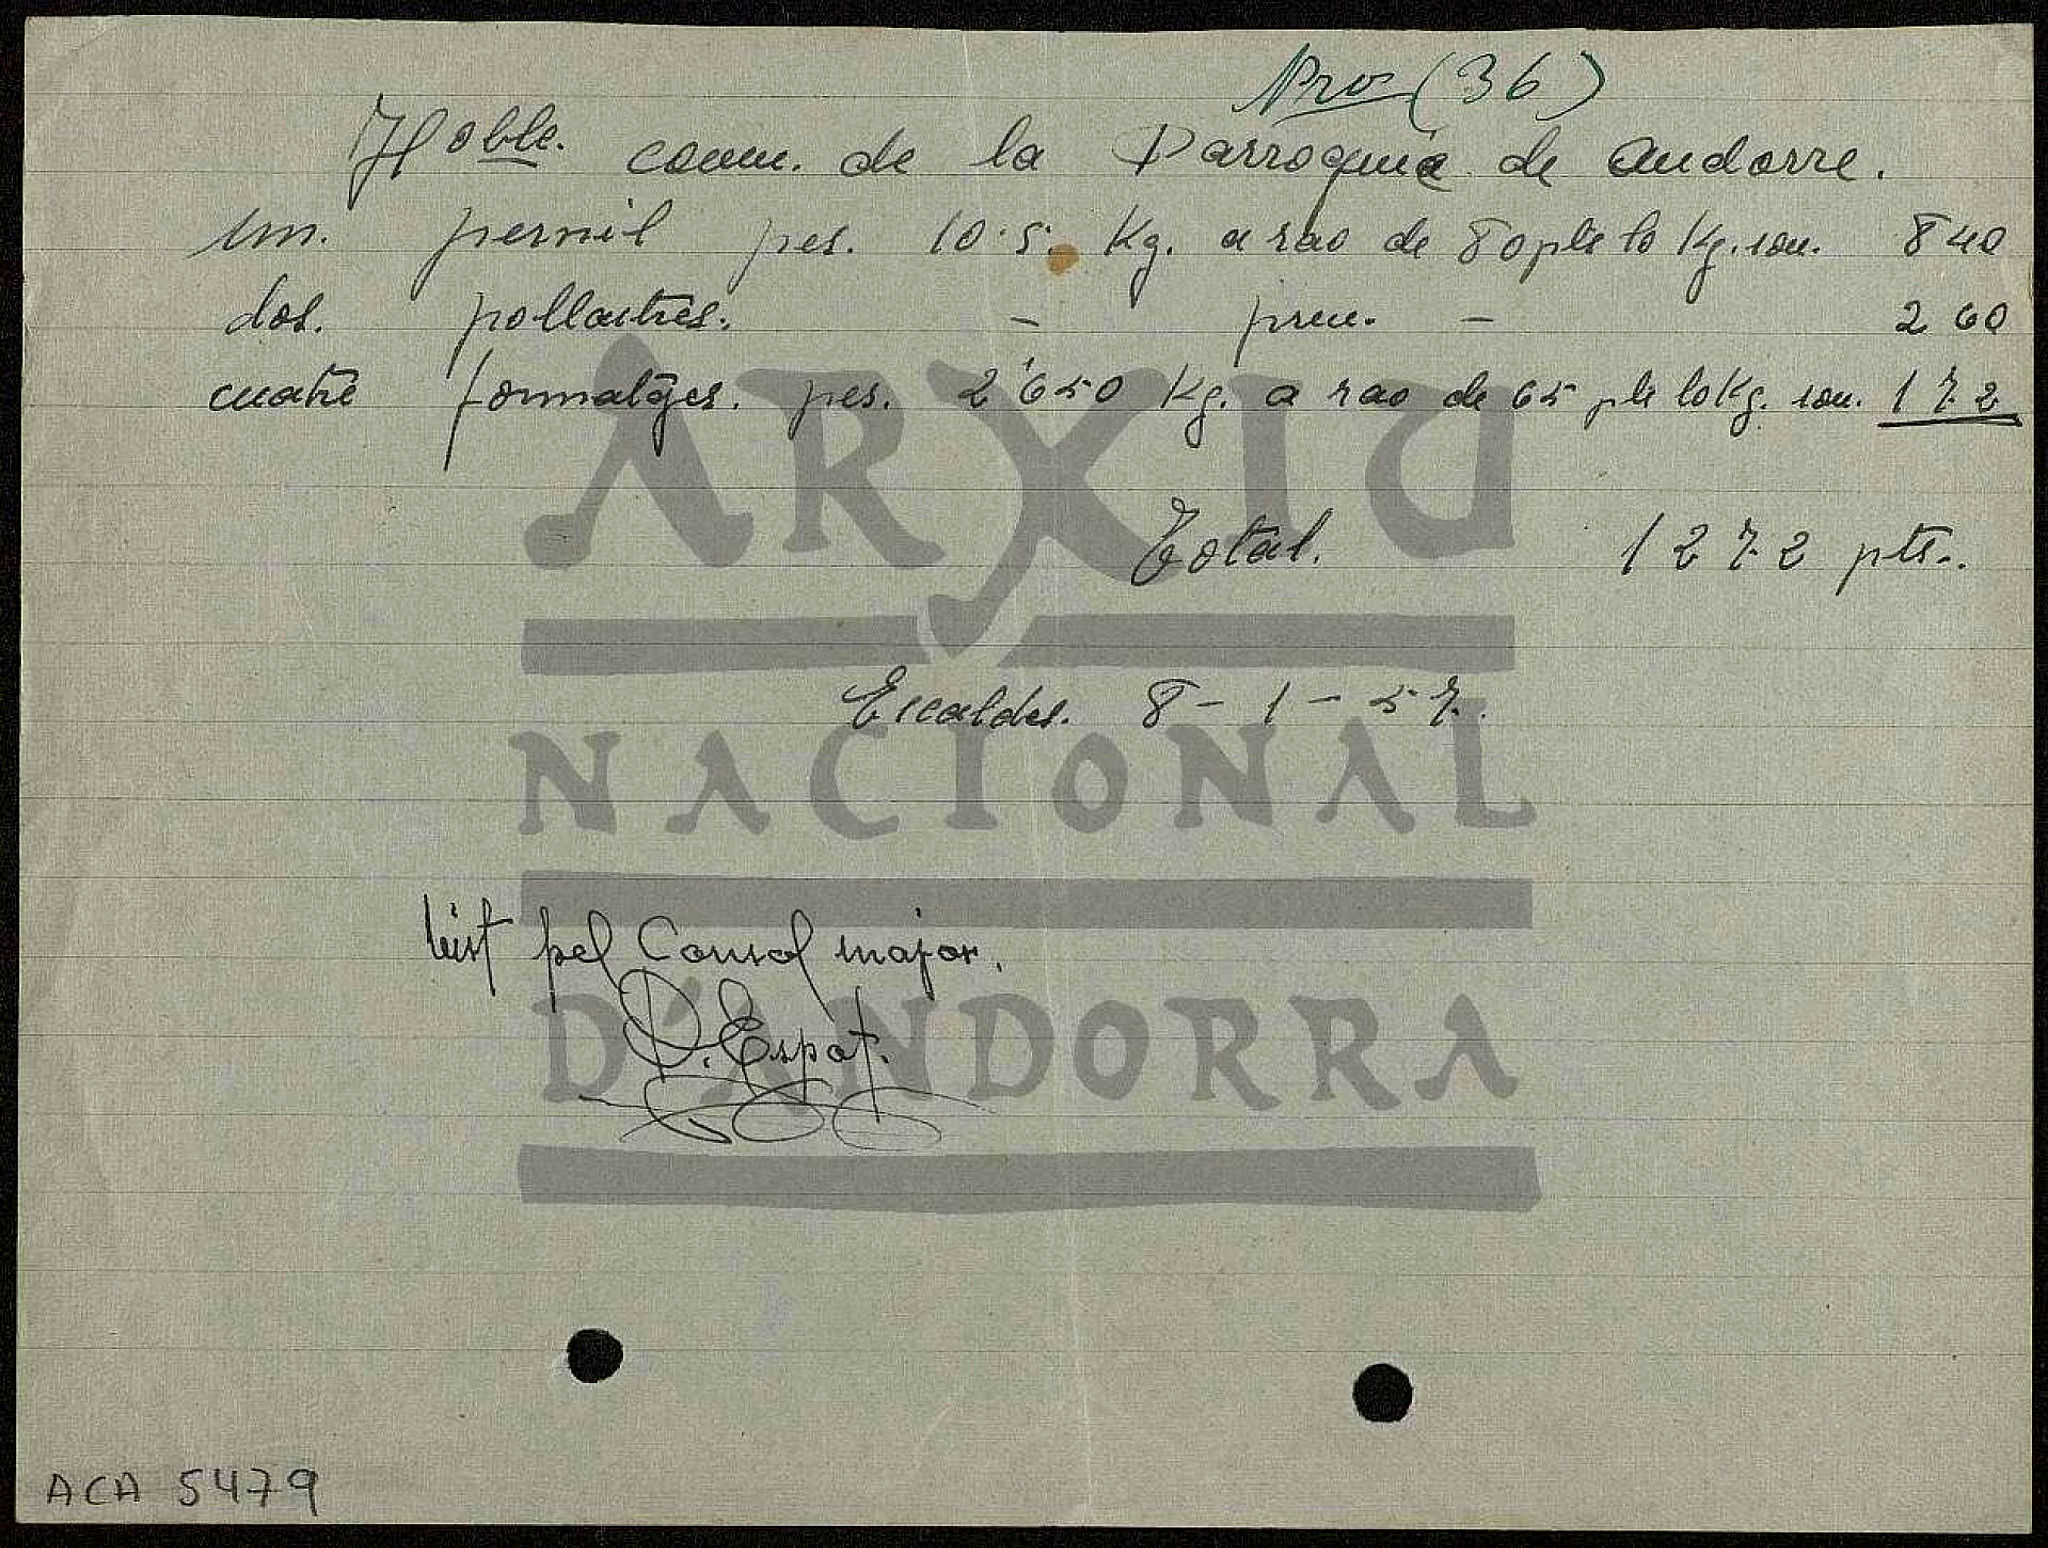 Nro (36)
Hoble. comu. de la Parroquia de Andorre.
un. pernil pes. 10.5. Kg. a rao de 80 pte lo Kg. son. 840
dos. pollastres. - preu. - 260
cuatre formatges. pes. 2'650 Kg. a rao de 65 pte lo Kg. son. 172
Total. 1272 pts.
Escaldes. 8-1-57.
Vist pel Consol major.
D. Espot.
ACA 5479
ARXIU
NACIONAL
D'ANDORRA